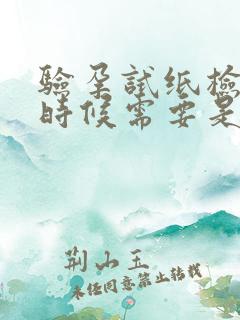 验孕试纸检
时候需要是
荆山玉
未经同意禁止转载